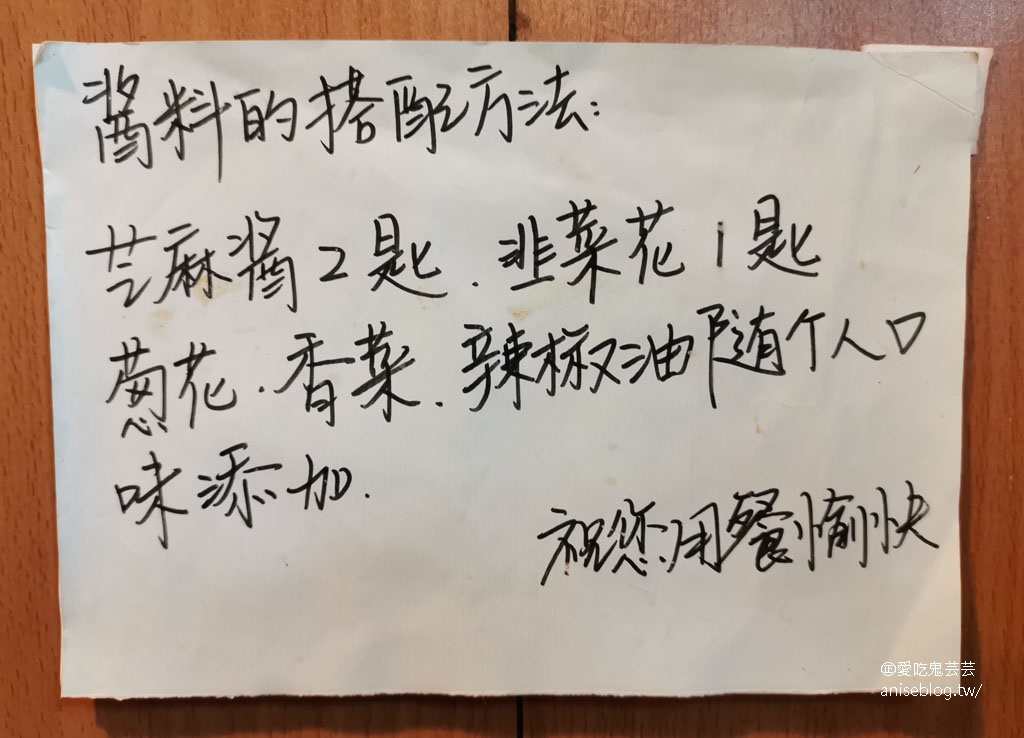 醬料的搭配方法:
芝麻醬2匙.韭菜花1匙
蔥花.香菜.辣椒油随個人口
味添加.
祝您用餐愉快
愛吃鬼芸芸
aniseblog.tw/